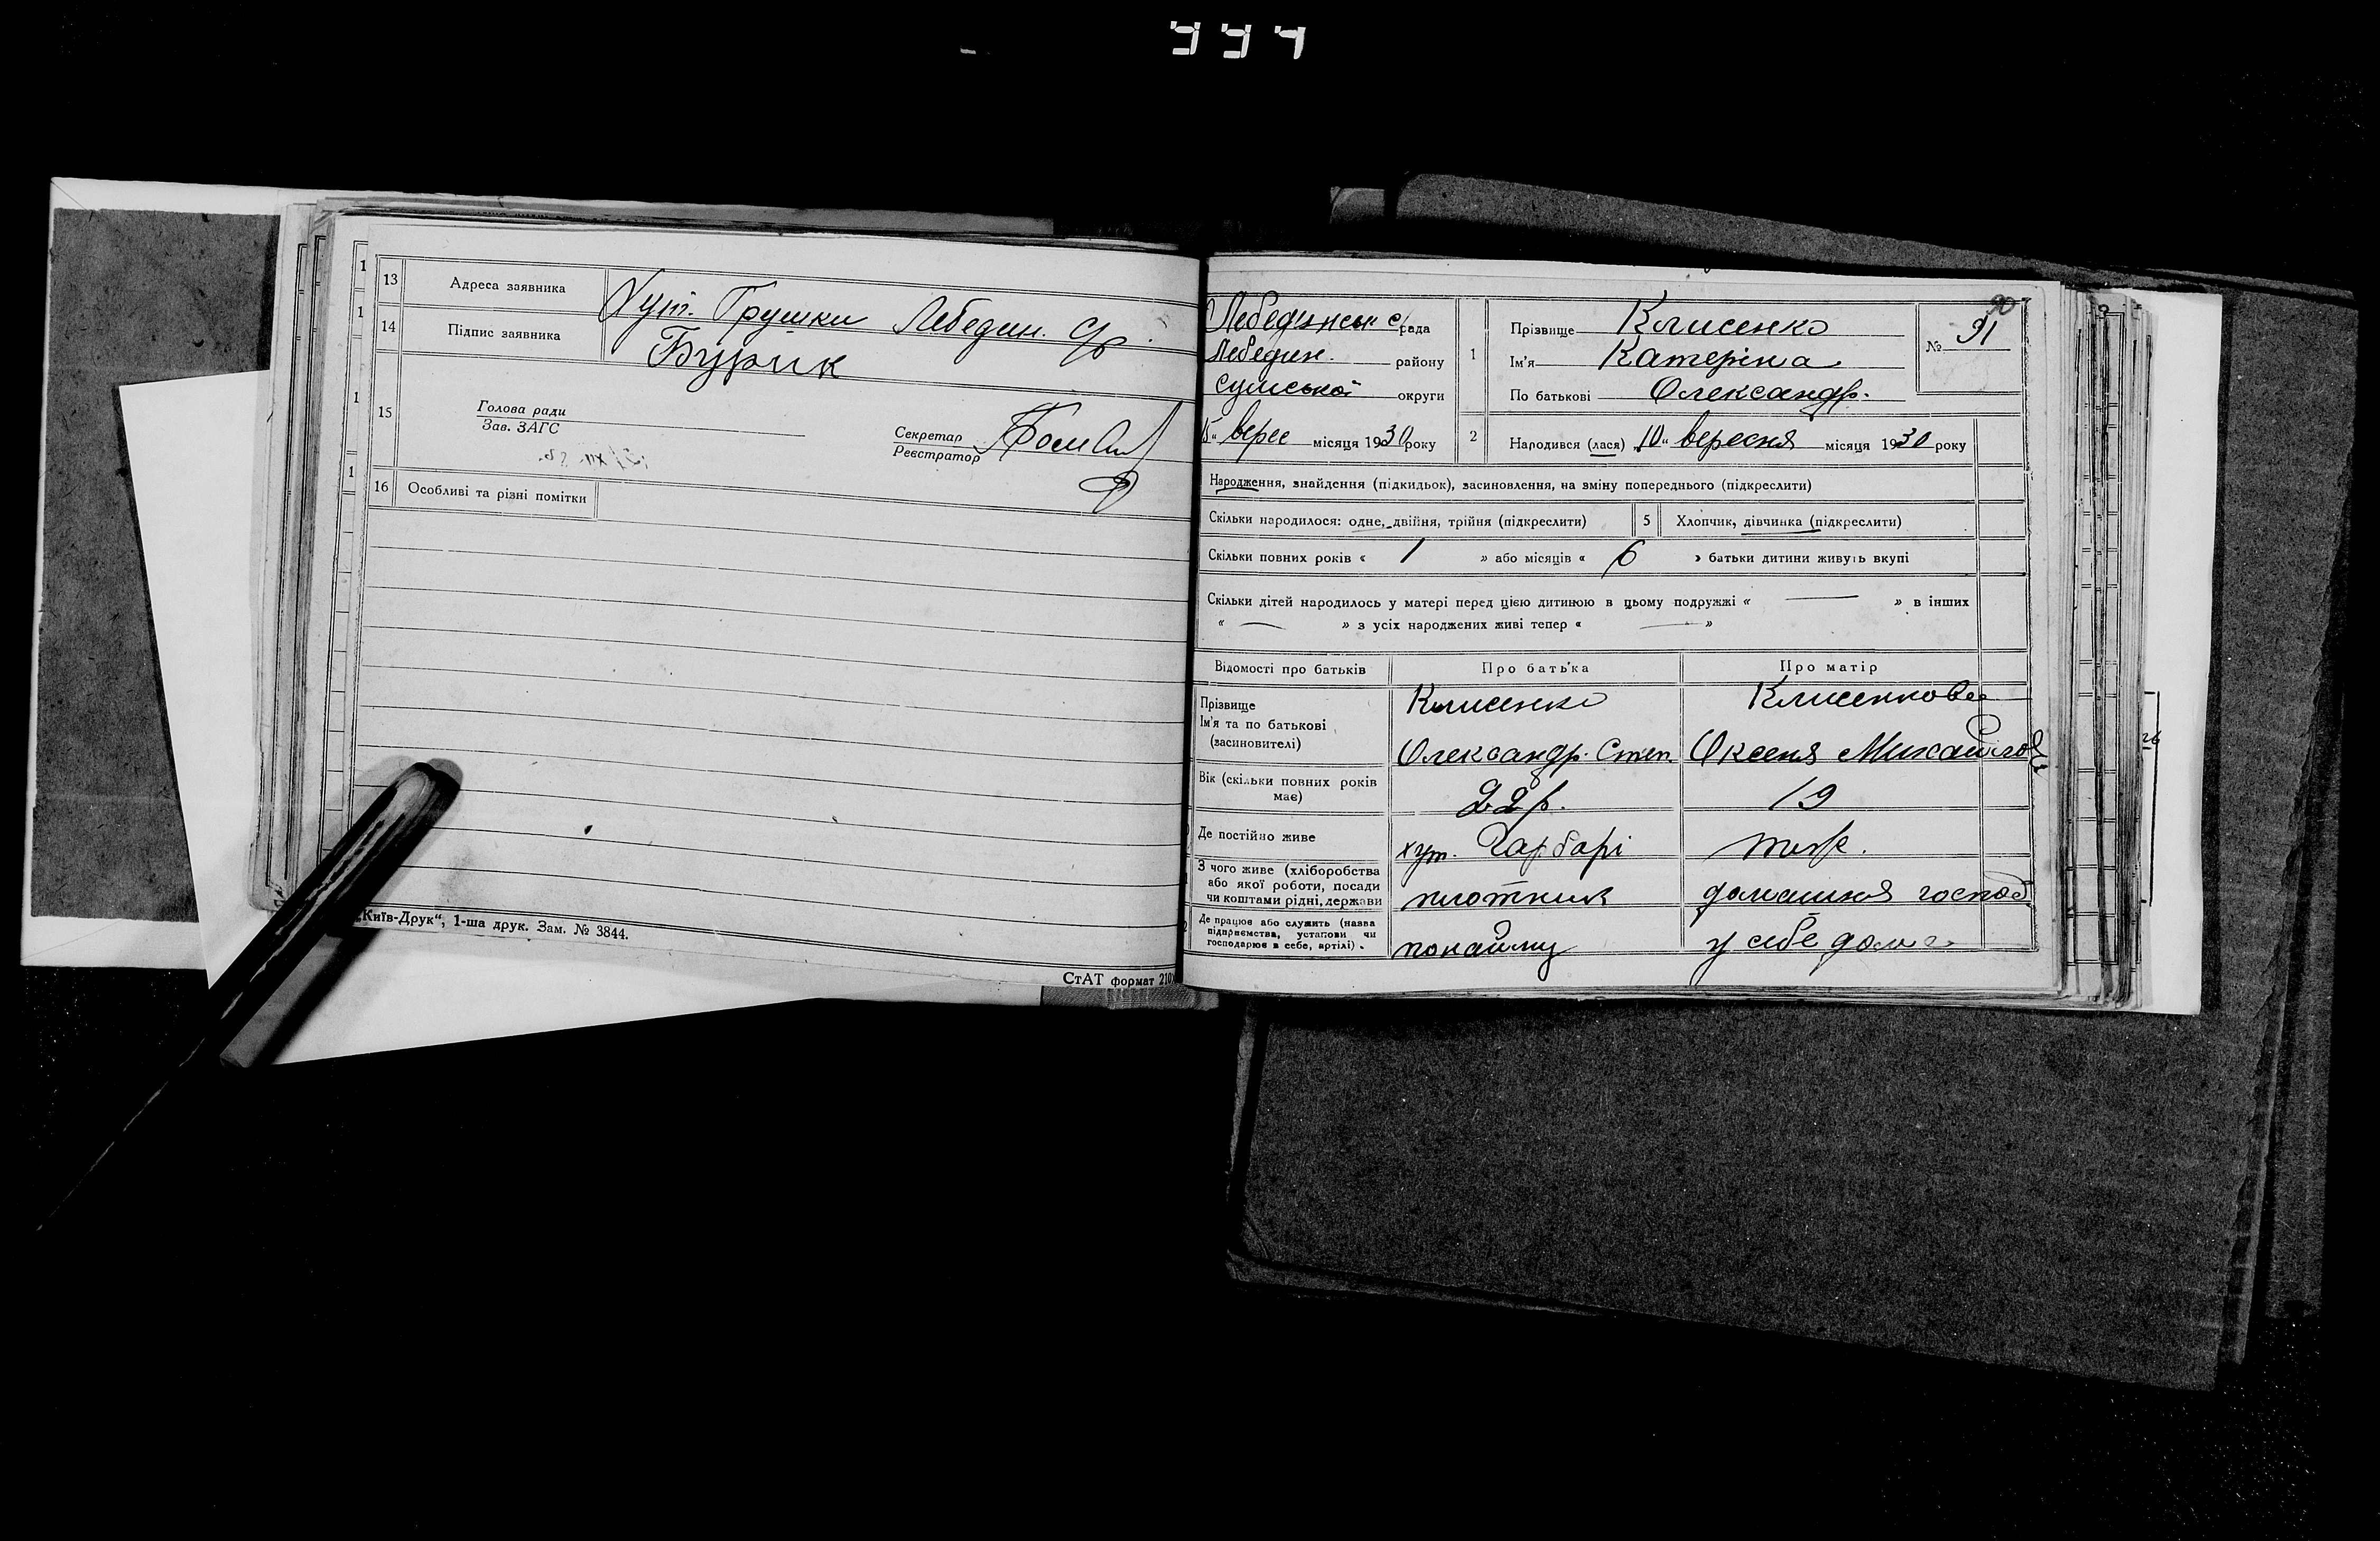 13 Адреса заявника Хут. Грушки Лебедин. с/р.
14 Підпис заявника Бурик
15 Голова ради
Зав. ЗАГС
Секретар
Реєстратор
16 Особливі та різні помітки
„Київ-Друк“, 1-ша друк. Зам. № 3844.
СтАТ формат 210
90
Лебединськ с/рада
Лебедин. району
сумської округи
15 „ верес місяця 1930 року
1 Прізвище Клисенко
Ім'я Катеріна
По батькові Олександр.
№ 91
2 Народився (лася) „10“ вересня місяця 1930 року
Народження, знайдення (підкидьок), засиновлення, на зміну попереднього (підкреслити)
Скільки народилося: одне, двійня, трійня (підкреслити) 5 Хлопчик, дівчинка (підкреслити)
Скільки повних років « 1 » або місяців « 6 » батьки дитини живуть вкупі
Скільки дітей народилось у матері перед цією дитиною в цьому подружжі « — » в інших
« — » з усіх народжених живі тепер « — »
Відомості про батьків Про батька Про матір
Прізвище Клисенко Клисенкова
Ім'я та по батькові
(засиновителі) Олександр. Степ. Оксеня Михайлов
Вік (скільки повних років
має) 22 р. 19
Де постійно живе хут. Гарбарі тож.
З чого живе (хліборобства
або якої роботи, посади
чи коштами рідні, держави плотник домашня господ
Де працює або служить (назва
підприємства, установи чи
господарює в себе, артілі). понайму у себе дома